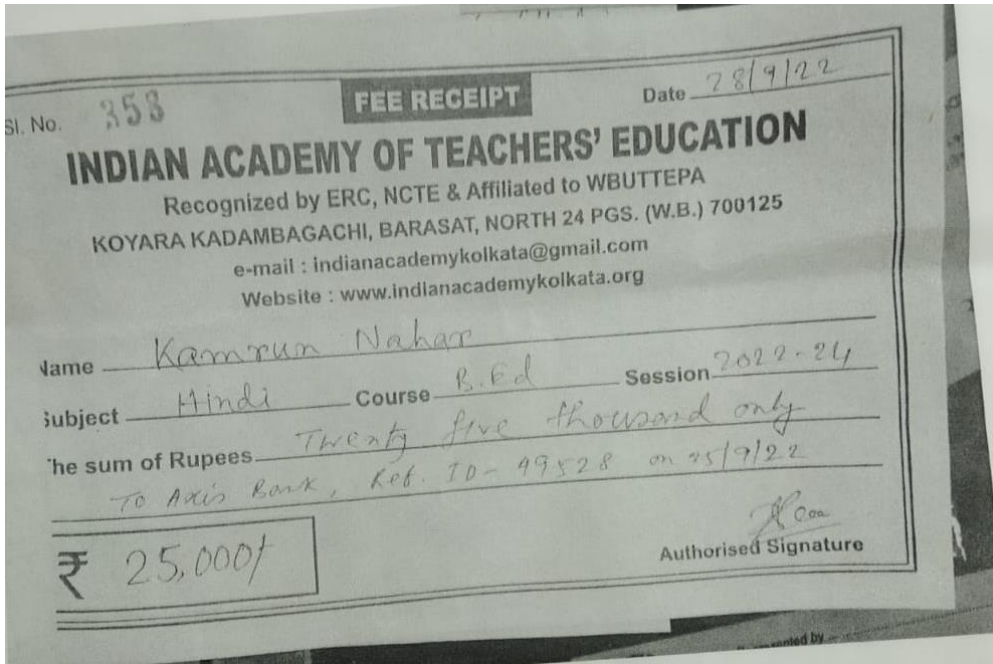 Sl. No. 353 FEE RECEIPT Date 28/9/22
INDIAN ACADEMY OF TEACHERS' EDUCATION
Recognized by ERC, NCTE & Affiliated to WBUTTEPA
KOYARA KADAMBAGACHI, BARASAT, NORTH 24 PGS. (W.B.) 700125
e-mail : indianacademykolkata@gmail.com
Website : www.indianacademykolkata.org
Name Kamrun Nahar
Subject Hindi Course B.Ed Session 2022-24
The sum of Rupees Twenty five thousand only
To Axis Bank, Ref. ID- 49528 on 25/9/22
₹ 25,000/
Authorised Signature